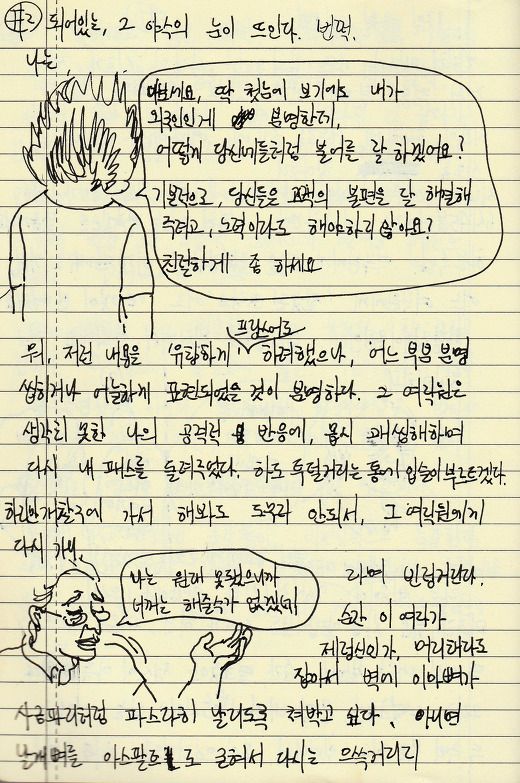 되어있는, 그 야수의 눈이 뜨인다. 번떡.
나는
이보세요, 딱 첫눈에 보기에도 내가
외국인인게 분명한데,
어떻게 당신네들처럼 불어를 잘 하겠어요?
기본적으로, 당신들은 고객의 불편을 잘 해결해
주려고, 노력이라도 해야하지 않아요?
친절하게 좀 하세요
프랑스어로
뭐, 저런 내용을 유창하게 하려했으나, 어느 부분 분명
씹히거나 어눌하게 표현되었을 것이 분명하다. 그 여직원은
생각지 못한 나의 공격적 반응에, 몹시 괘씸해하며
다시 내 패스를 돌려주었다. 하도 투덜거리는 통에 입술이 부르트겠다.
하지만 개찰구에 가서 해봐도 도무지 안되서, 그 여직원에게
다시 가니,
나는 원래 못됐으니까
너꺼는 해줄수가 없겠네
라며 빈정거린다.
순간 이 여자가
제정신인가, 머리채라도
잡아서 벽에 이마빼가
사금파리처럼 파스라히 날리도록 쳐박고 싶다, 아니면
날개벼를 아스팔트로 긁혀서 다시는 으쓱거리지